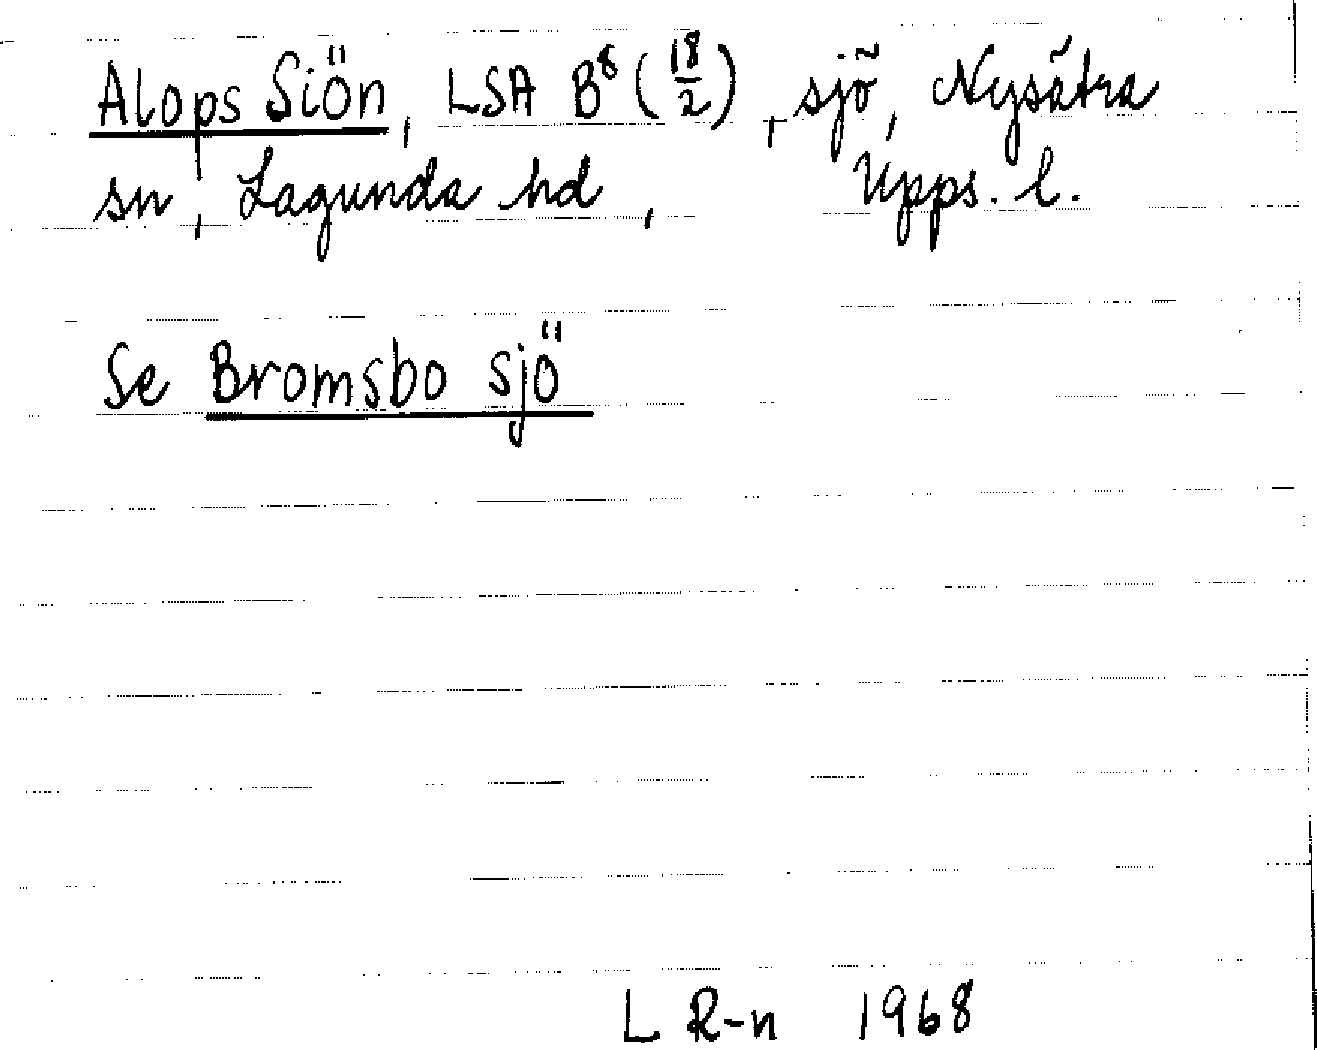 Alops Siön, LSA B⁸ (18/2), sjö, Nysätra
sn, Lagunda hd, Upps. l.
Se Bromsbo sjö
L R-n 1968